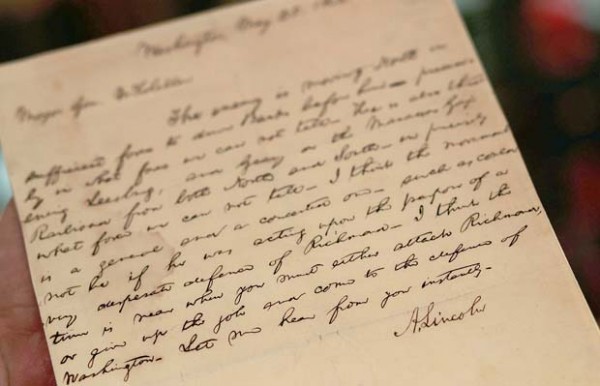 Washington May 25.
Major Gen. McClellan
The enemy is moving North in
sufficient force to drive Banks before him— precise-
ly in what force we can not tell— He is also threat-
ening Leesburg, and Geary on the Manassas Gap
Railroad from both North and South— in precisely
what force we can not tell— I think the movement
is a general and a concerted one— such as could
not be if he was acting upon the purpose of a
very desperate defence of Richmond— I think the
time is near when you must either attack Richmond,
or give up the job and come to the defence of
Washington— Let me hear from you instantly—
A. Lincoln